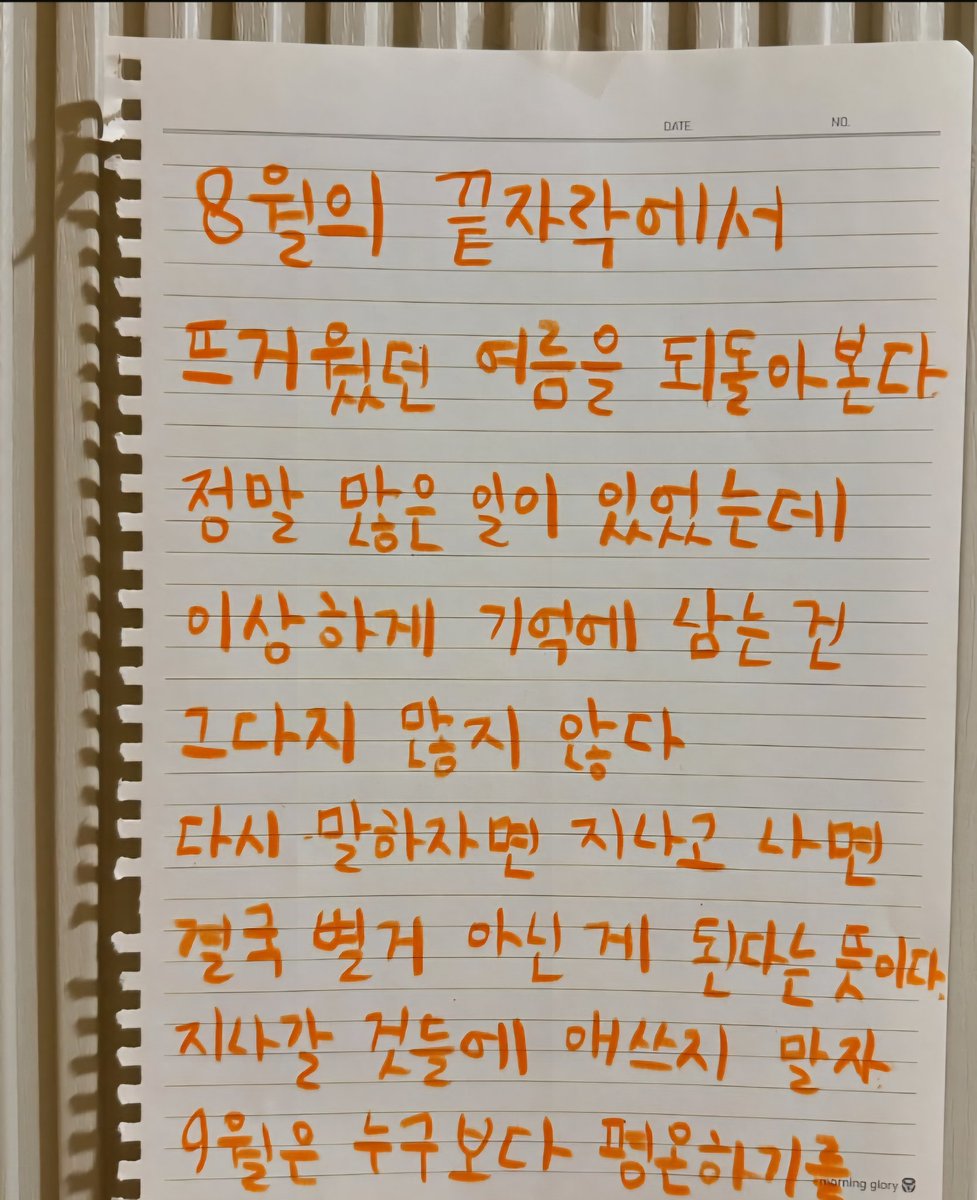 DATE NO.
8월의 끝자락에서
뜨거웠던 여름을 되돌아본다.
정말 많은 일이 있었는데
이상하게 기억에 남는 건
그다지 많지 않다
다시 말하자면 지나고 나면
결국 별거 아닌 게 된다는 뜻이다.
지나갈 것들에 애쓰지 말자.
9월은 누구보다 평온하기를
morning glory